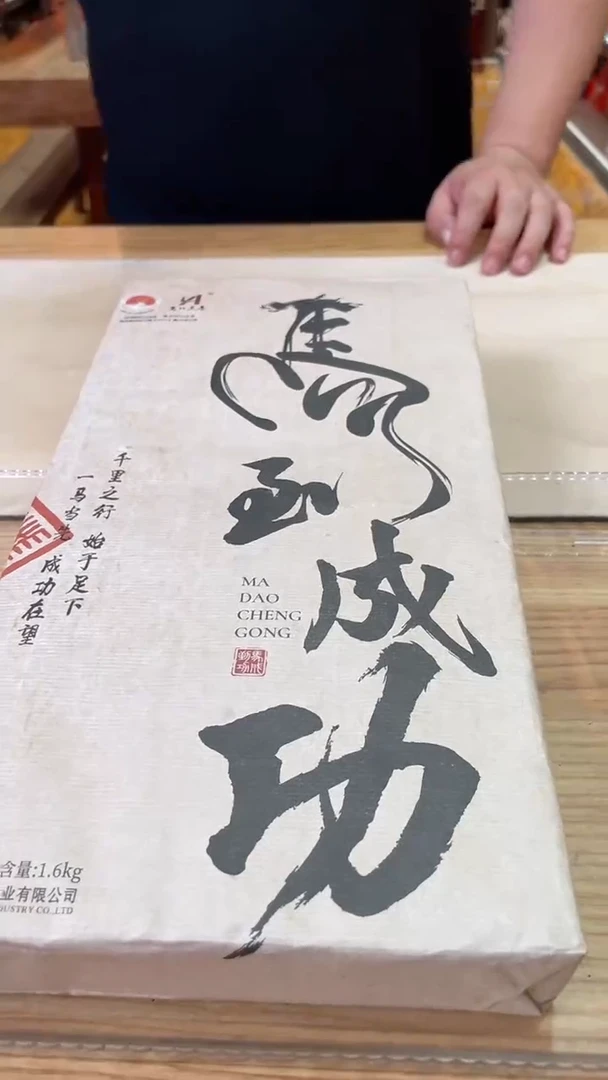 馬到成功
MA
DAO
CHENG
GONG
千里之行 始于足下
一马当先 成功在望
含量:1.6kg
业有限公司
DUSTRY CO.,LTD